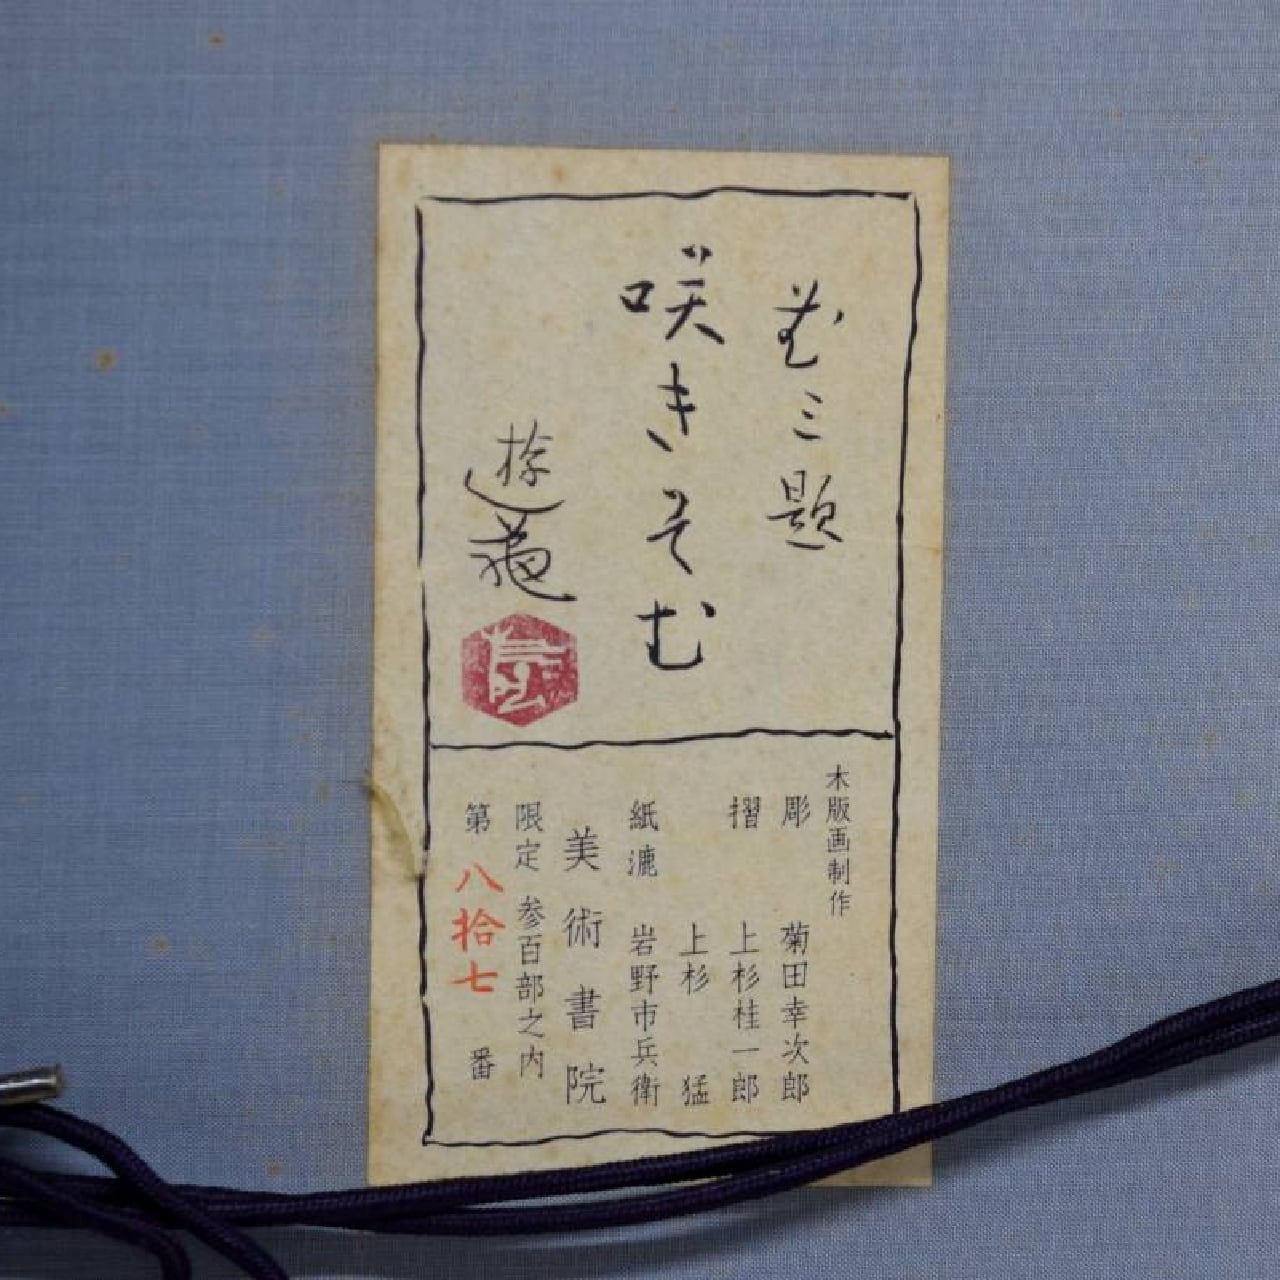 花三題
咲きそむ
遊亀
木版画制作
彫 菊田幸次郎
摺 上杉桂一郎
上杉 猛
紙漉 岩野市兵衛
美術書院
限定 参百部之内
第 八拾七 番